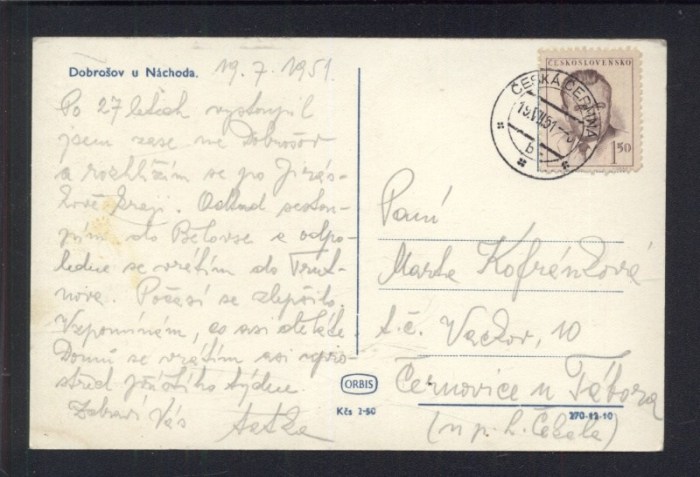 Dobrošov u Náchoda. 19.7.1951.
Po 27 letech vystoupil
jsem zase na Dobrošov
a rozhlížím se po Jirás-
kově kraji. Odtud sestou-
pím do Bělovse a odpo-
ledne se vrátím do Trut-
nova. Počasí se zlepšilo.
Vzpomínám, co asi děláte.
Domů se vrátím asi upro-
střed příštího týdne.
Zdraví Vás
ČESKOSLOVENSKO
1.50
ČESKÁ ČERMNÁ
19.VII.51
b
Paní
Marta Kofránková
t.č. Vackov, 10
Černovice u Tábora
(u p. h. Čekala)
ORBIS
Kčs 1·50
270-12-10